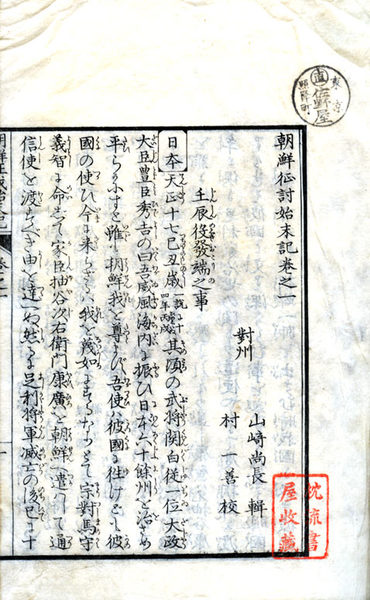 朝鮮征討始末記卷之一
對州 山崎尚長 輯
村 一善 校
壬辰役發端之事
日本天正十七己丑歳一説ニ十四年丙戌其頃の武将関白従一位大政
大臣豊臣秀吉の曰吾威風海内に振ひ日本六十餘州を治め
平らかにすと雖朝鮮我を尊ばず吾使ハ彼國に往けども彼
國の使ひ今に来らざるハ我を蔑如にするなりとて宗對馬守
義智に命して家臣柚谷次右衛門康廣を朝鮮へ遣りて通
信使を渡らすべき由を達しぬ然るに足利将軍滅亡の後已に十
東京
直
佐野屋
沈流書
屋收藏